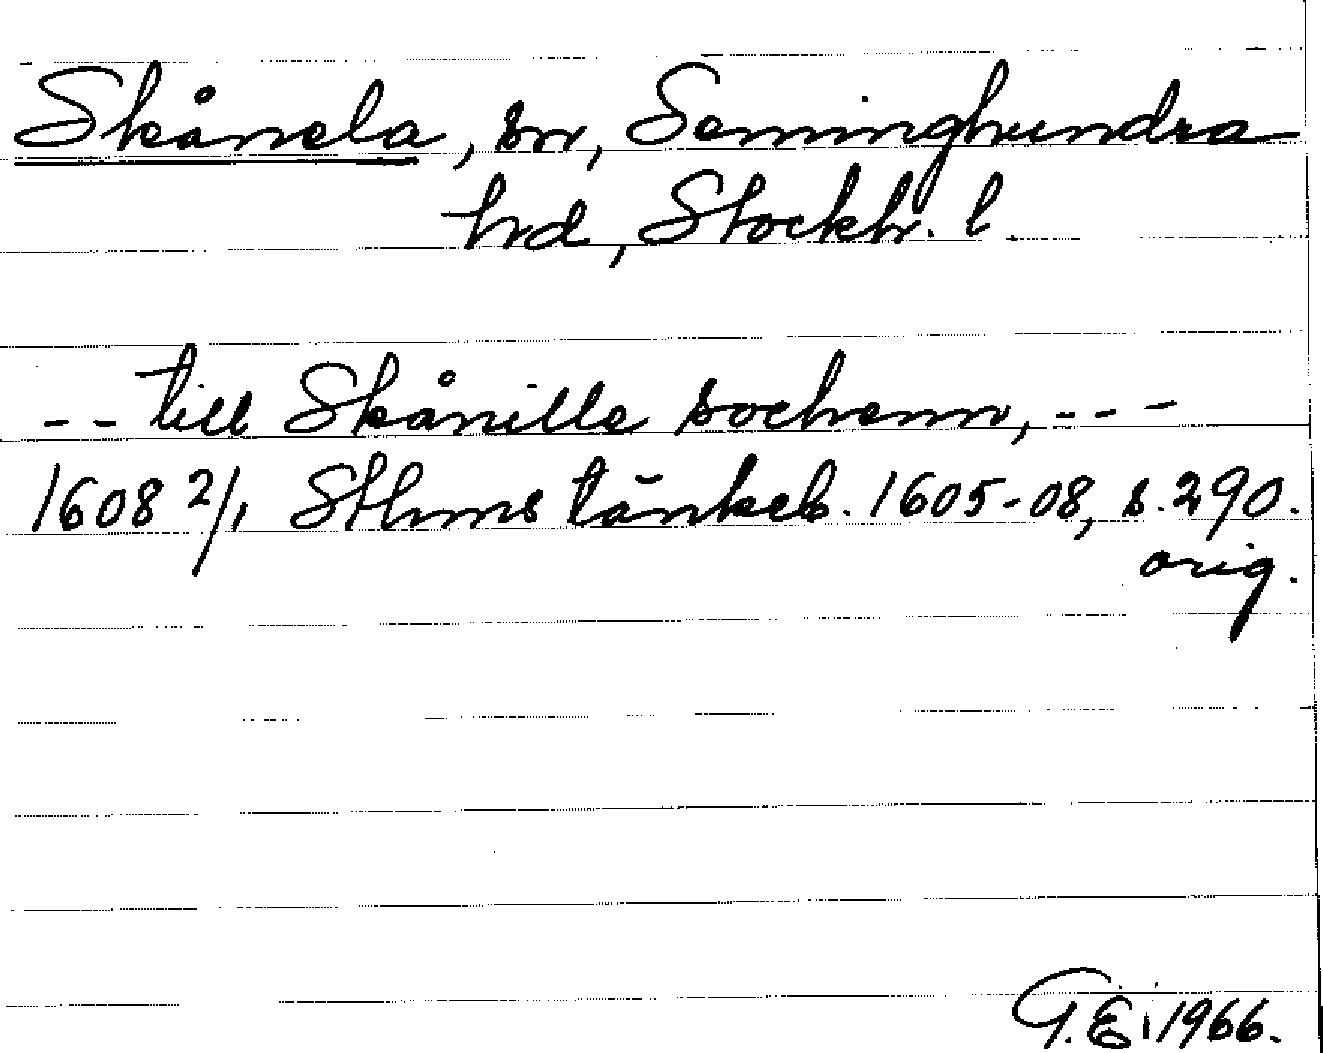 Skånela, sn, Seminghundra
hrd, Stockh. l.
-- till Skånille sochenn, ---
1608 2/1 Sthms tänkeb. 1605-08, s. 290.
orig.
G.E. 1966.